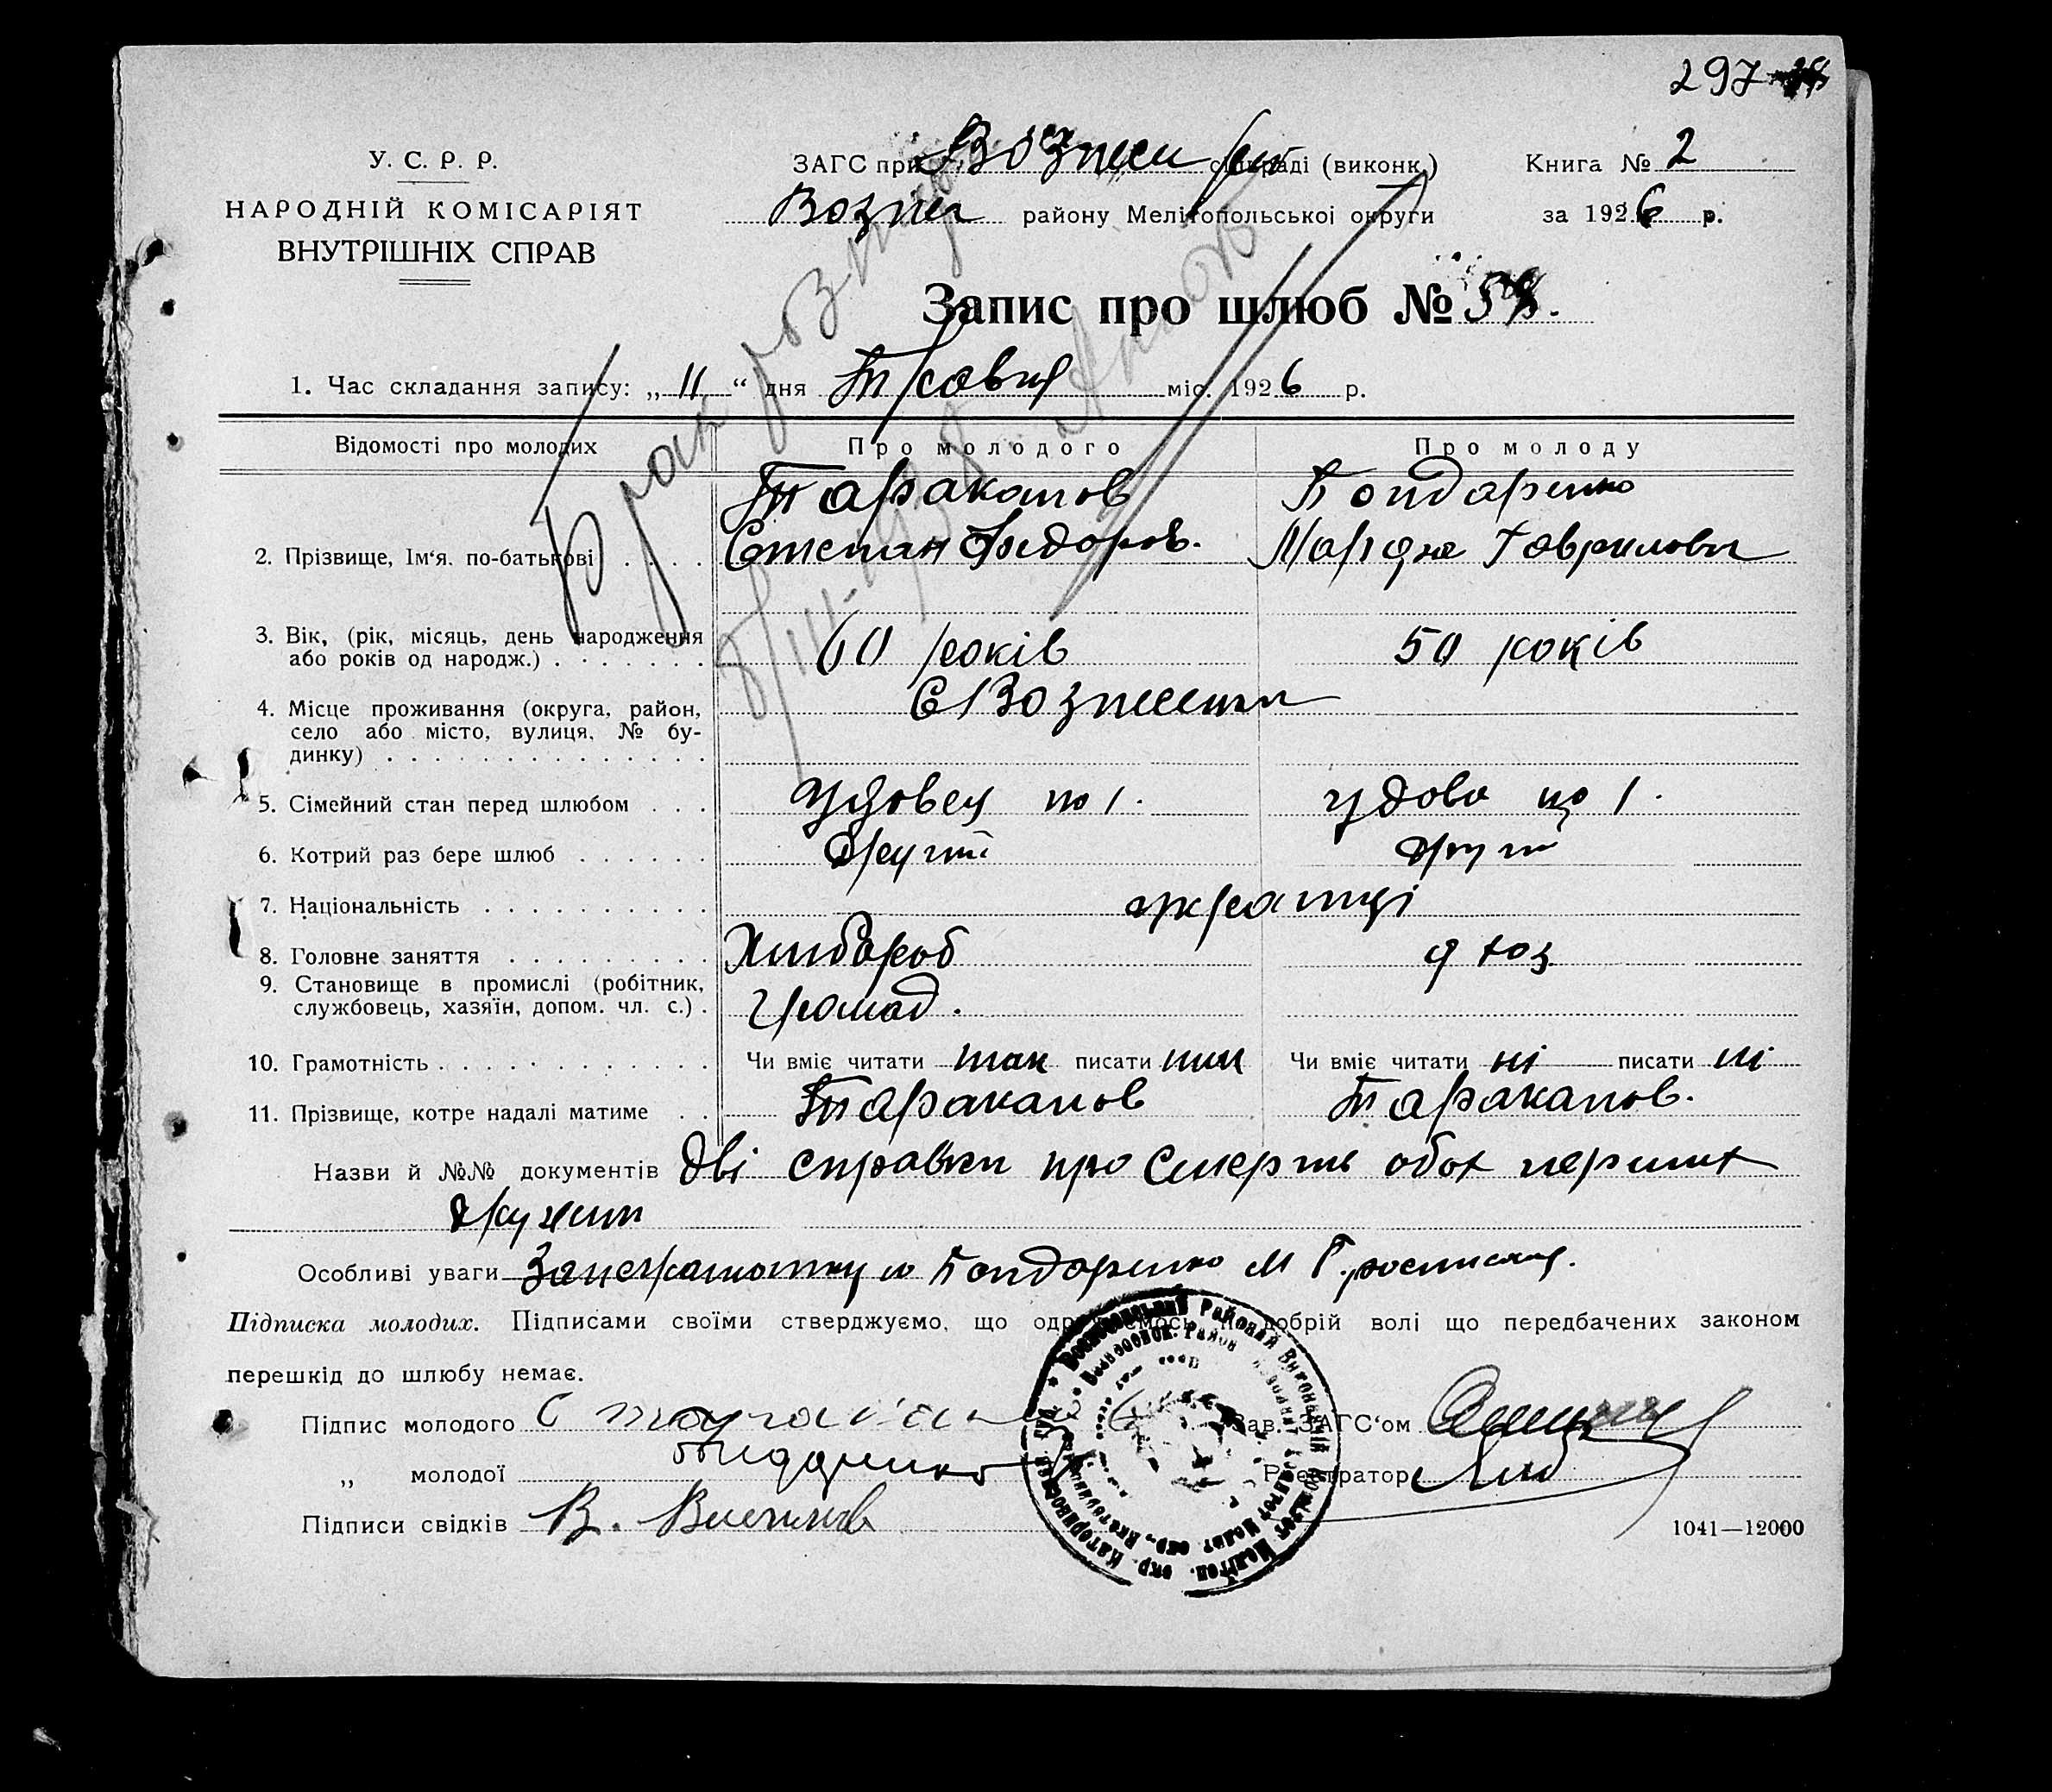 297
У. С. Р. Р.
НАРОДНІЙ КОМІСАРІЯТ
ВНУТРІШНІХ СПРАВ
ЗАГС при Вознесен сільраді (виконк.)
Книга № 2
Вознес району Мелітопольської округи
за 1926 р.
Запис про шлюб №
1. Час складання запису: „11“ дня Травня міс. 1926 р.
Брак розторг
8/III-1938
Відомості про молодих
Про молодого
Про молоду
2. Прізвище, Ім‘я. по-батькові
Тараканов
Степан Федоров.
Бондаренко
Мар'яна Гавриловна
3. Вік, (рік, місяць, день народження
або років од народж.)
60 років
50 років
4. Місце проживання (округа, район,
село або місто, вулиця, № бу-
динку)
С Вознесенка
5. Сімейний стан перед шлюбом
удовец по 1.
удова по 1.
6. Котрий раз бере шлюб
другий
друг
7. Національність
українці
8. Головне заняття
Хлібороб
д хоз
9. Становище в промислі (робітник,
службовець, хазяїн, допом. чл. с.)
громад.
10. Грамотність
Чи вміє читати так писати так
Чи вміє читати ні писати ні
11. Прізвище, котре надалі матиме
Тараканов
Тараканов.
Назви й №№ документів Дві справки про смерть обох перших
дружин
Особливі уваги За неграмотну Бондаренко М Г росписался.
Підписка молодих. Підписами своїми стверджуємо, що одружуємось по добрій волі що передбачених законом
перешкід до шлюбу немає.
Підпис молодого С Тараканов
Зав. ЗАГС‘ом
„ молодої
Реєстратор
Підписи свідків В.
1041—12000